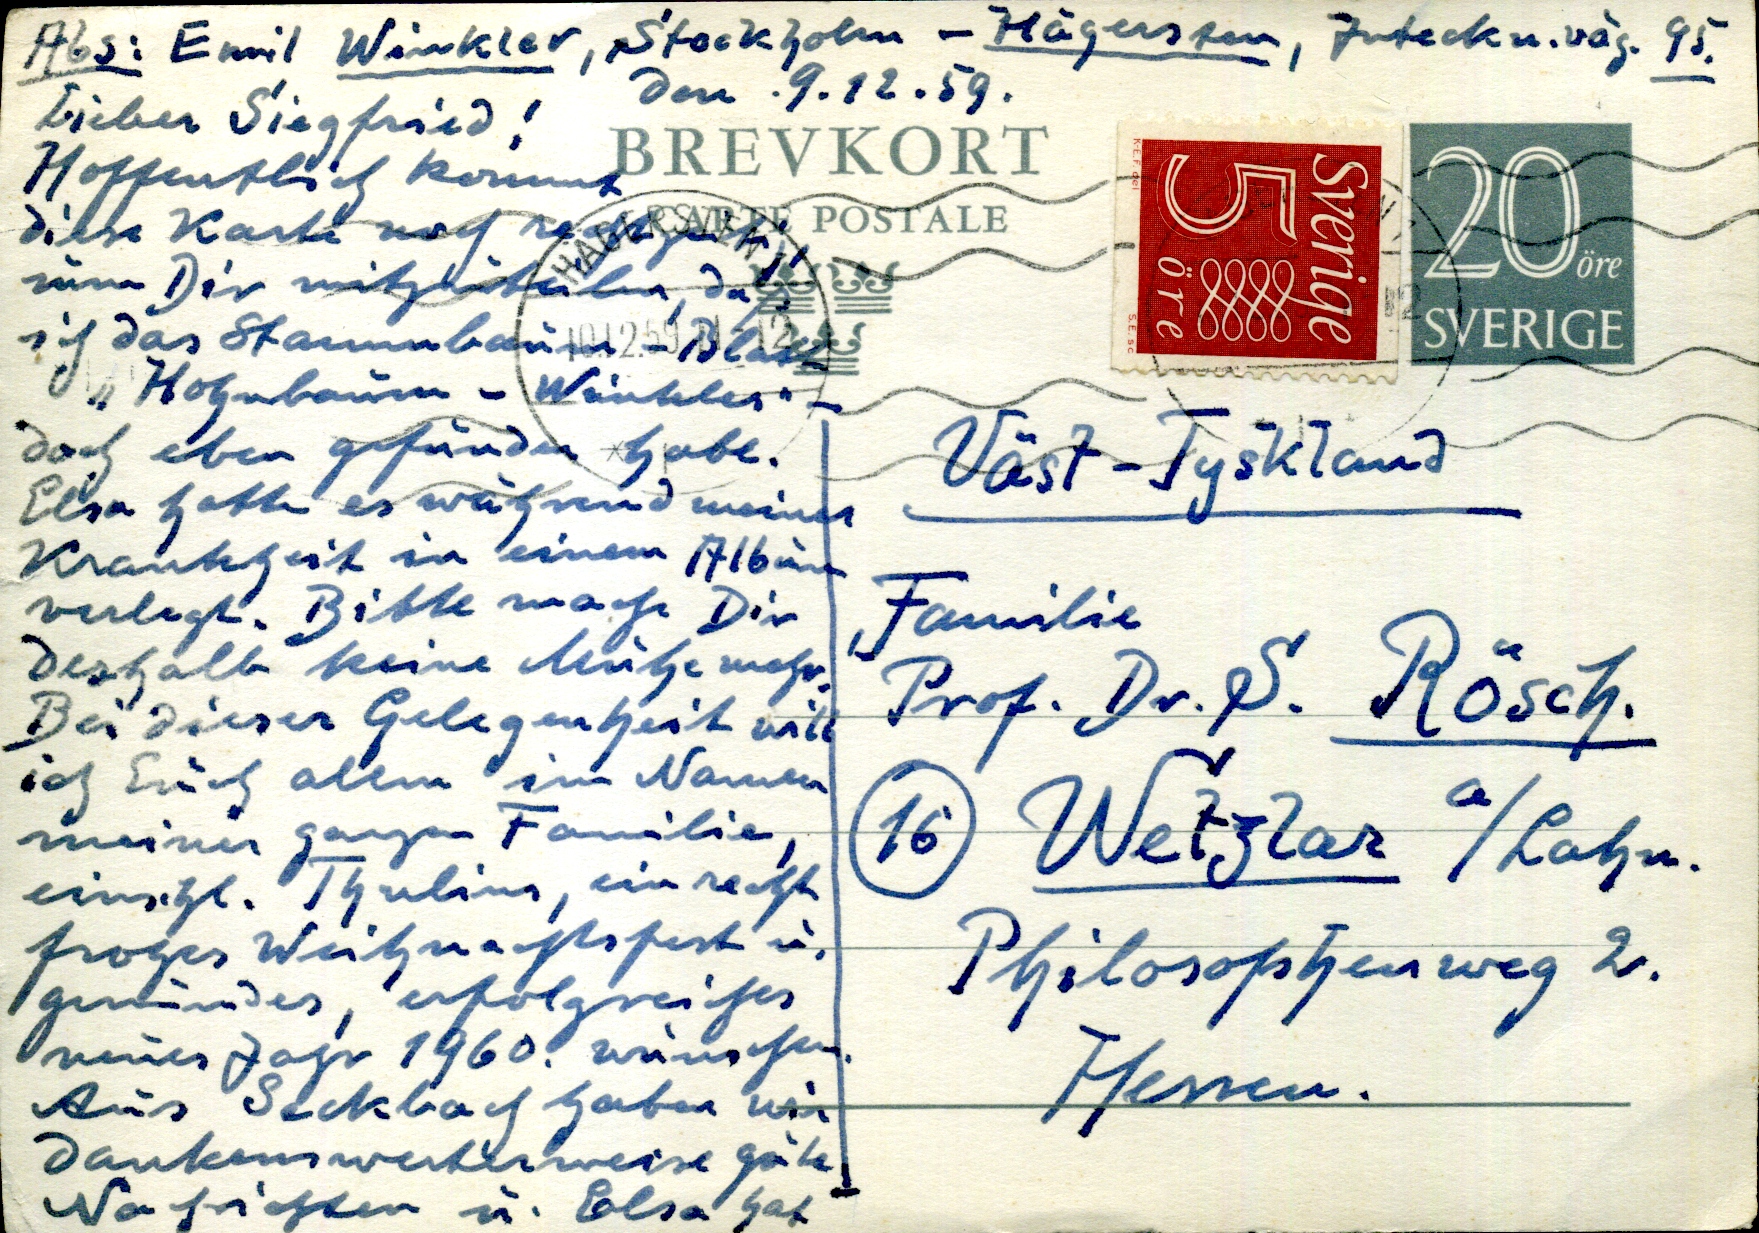 Abs: Emil Winkler, Stockholm - Hägersten, Inteckn.väg. 95.
den 9.12.59.
Lieber Siegfried!
Hoffentlich kommt
diese Karte noch rechtzeitig
um Dir mitzuteilen, daß
ich das Stammbaum-Blatt
"Hohnbaum - Winkler" -
doch eben gefunden habe.
Elsa hatte es während meiner
Krankheit in einem Album
verlegt. Bitte mache Dir
deshalb keine Mühe mehr.
Bei dieser Gelegenheit will
ich Euch allen im Namen
meiner ganzen Familie,
einschl. Thulins, ein recht
frohes Weihnachtsfest u.
gesundes, erfolgreiches
neues Jahr 1960. wünschen.
Aus Seckbach haben wir
dankenswerterweise gute
Nachrichten u. Elsa hat
BREVKORT
CARTE POSTALE
HÄGERSTEN 1
10.12.59
Sverige
5
öre
20 öre
SVERIGE
Väst-Tyskland
Familie
Prof. Dr. S. Rösch.
16 Wetzlar a/Lahn.
Philosophenweg 2.
Hessen.